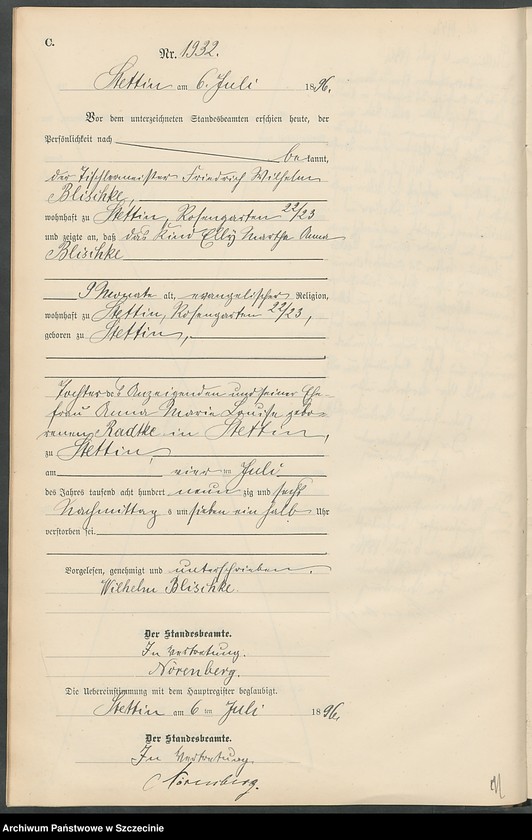 C.
Nr. 1932.
Stettin am 6. Juli 1896.
Vor dem unterzeichneten Standesbeamten erschien heute, der
Persönlichkeit nach
bekannt,
der Tischlermeister Friedrich Wilhelm
Blischke,
wohnhaft zu Stettin, Rosengarten 22/23
und zeigte an, daß das Kind Elly Martha Anna
Blischke
9 Monate alt, evangelischer Religion,
wohnhaft zu Stettin, Rosengarten 22/23,
geboren zu Stettin,
Tochter des Anzeigenden und seiner Ehe-
frau Anna Marie Louise gebo-
renen Radtke in Stettin,
zu Stettin,
am vierten Juli
des Jahres tausend acht hundert neunzig und sechs
Nachmittags um sieben ein halb Uhr
verstorben sei.
Vorgelesen, genehmigt und unterschrieben.
Wilhelm Blischke.
Der Standesbeamte.
In Vertretung.
Nörenberg.
Die Uebereinstimmung mit dem Hauptregister beglaubigt.
Stettin am 6ten Juli 1896.
Der Standesbeamte.
In Vertretung.
Nörenberg.
Archiwum Państwowe w Szczecinie